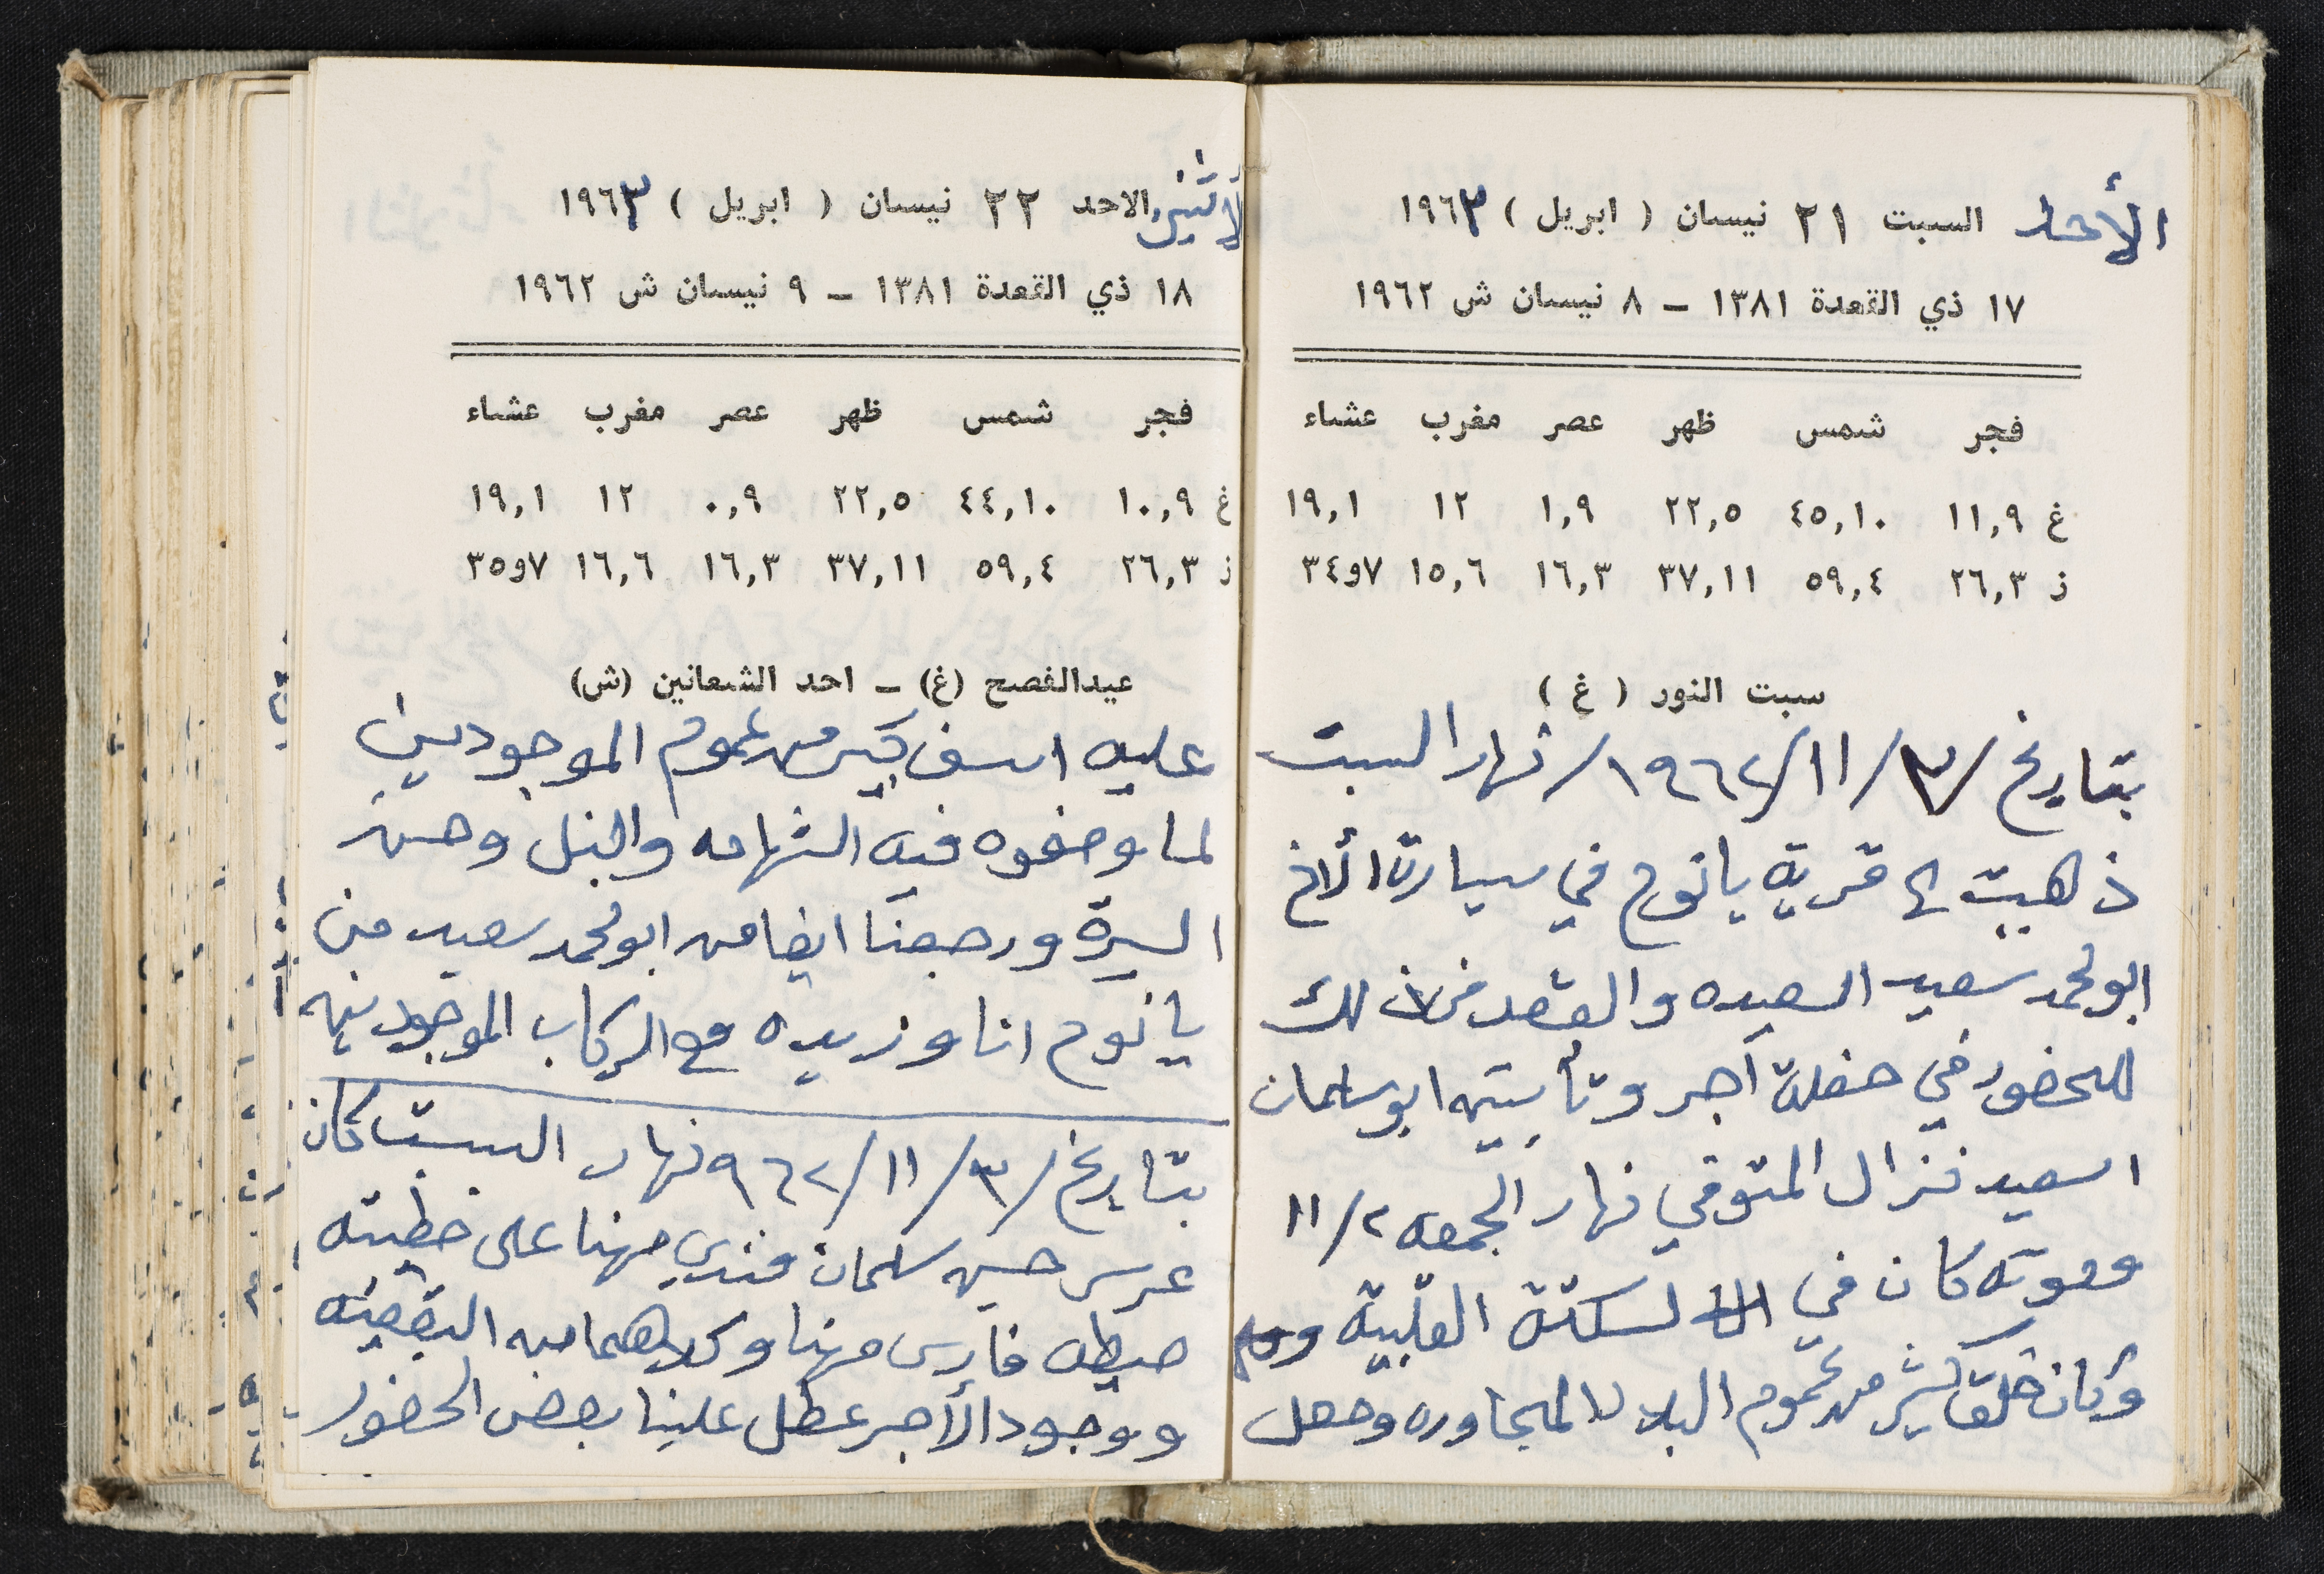 الأحد السبت ٢١ نيسان ( ابريل ) ١٩٦٣
١٧ ذي القعدة ١٣٨١ – ٨ نيسان ش ١٩٦٢
فجر شمس ظهر عصر مغرب عشاء
غ ١١,٩ ٤٥,١٠ ٢٢,٥ ١,٩ ١٢ ١٩,١
ز ٢٦,٣ ٥٩,٤ ٣٧,١١ ١٦,٣ ١٥,٦ ٧و٣٤
سبت النور ( غ )
بتاريخ /٣/١١/١٩٦٢/ نهار السبت
ذهبت الى قرية يانوح في سيارة الأخ
ابو محمد سعيد السعيده والقصد من ذلك
للحضور في حفلة آجر وتأبين ابو سلمان
اسعيد نزال المتوفي نهار الجمعه ١١/٢
وموته كان في السكتة القلبية
وكان خلق كثير من عموم البلاد المجاوره وحصل
الاثنين الاحد ٢٢ نيسان ( ابريل ) ١٩٦٣
١٨ ذي القعدة ١٣٨١ – ٩ نيسان ش ١٩٦٢
فجر شمس ظهر عصر مغرب عشاء
غ ١٠,٩ ٤٤,١٠ ٢٢,٥ ٠,٩ ١٢ ١٩,١
ز ٢٦,٣ ٥٩,٤ ٣٧,١١ ١٦,٣ ١٦,٦ ٧و٣٥
عيدالفصح (غ) – احد الشعانين (ش)
عليه اسف كبير من عموم الموجودين
لما وصفوه فيه الشهامه والنبل وحسن
السيرة ورجعنا ايضا مع ابو محمد سعيد من
يانوح انا وزيده مع الركاب الموجودين
بتاريخ /٣/١١/٩٦٢ نهار السبت كان
عرس حسين سلمان فندي مهنا على خطيبته
فارس مهنا وكلاهما من البقيعه
ووجود الأجر عطل علينا بعض الحضور